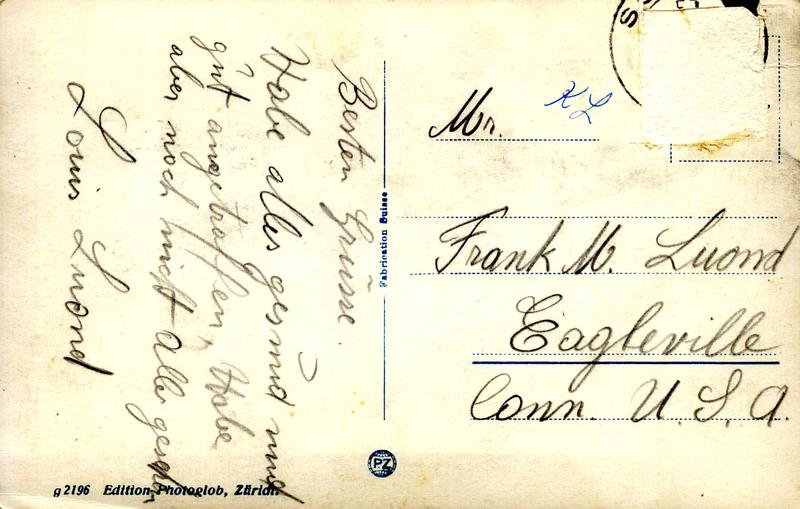 Besten Grüsse.
Habe alles gesund und
gut angetroffen, Habe
aber noch nicht Alle gesehen
Louis Luond
Fabrication Suisse
PZ
g 2196 Edition Photoglob, Zürich.
Mr.
KL
Frank M. Luond
Eagleville
Conn. U. S. A.